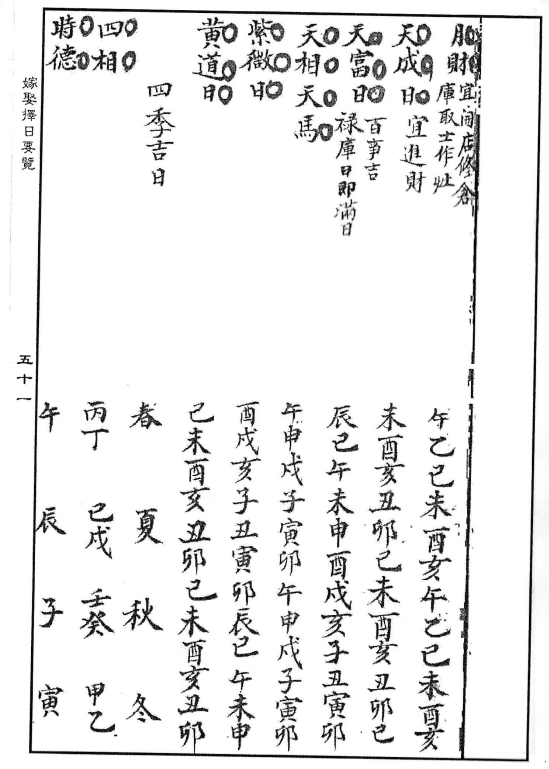 月財 宜開店修倉
庫取土作灶 午乙巳未酉亥午乙巳未酉亥
天成日 宜進財 未酉亥丑卯巳未酉亥丑卯巳
天富日 百事吉
祿庫日即滿日 辰巳午未申酉戌亥子丑寅卯
天相天馬 午申戌子寅卯午申戌子寅卯
紫微日 酉戌亥子丑寅卯辰巳午未申
黄道日 巳未酉亥丑卯巳未酉亥丑卯
四季吉日 春 夏 秋 冬
四相 丙丁 巳戌 壬癸 甲乙
時德 午 辰 子 寅
嫁娶擇日要覽
五十一